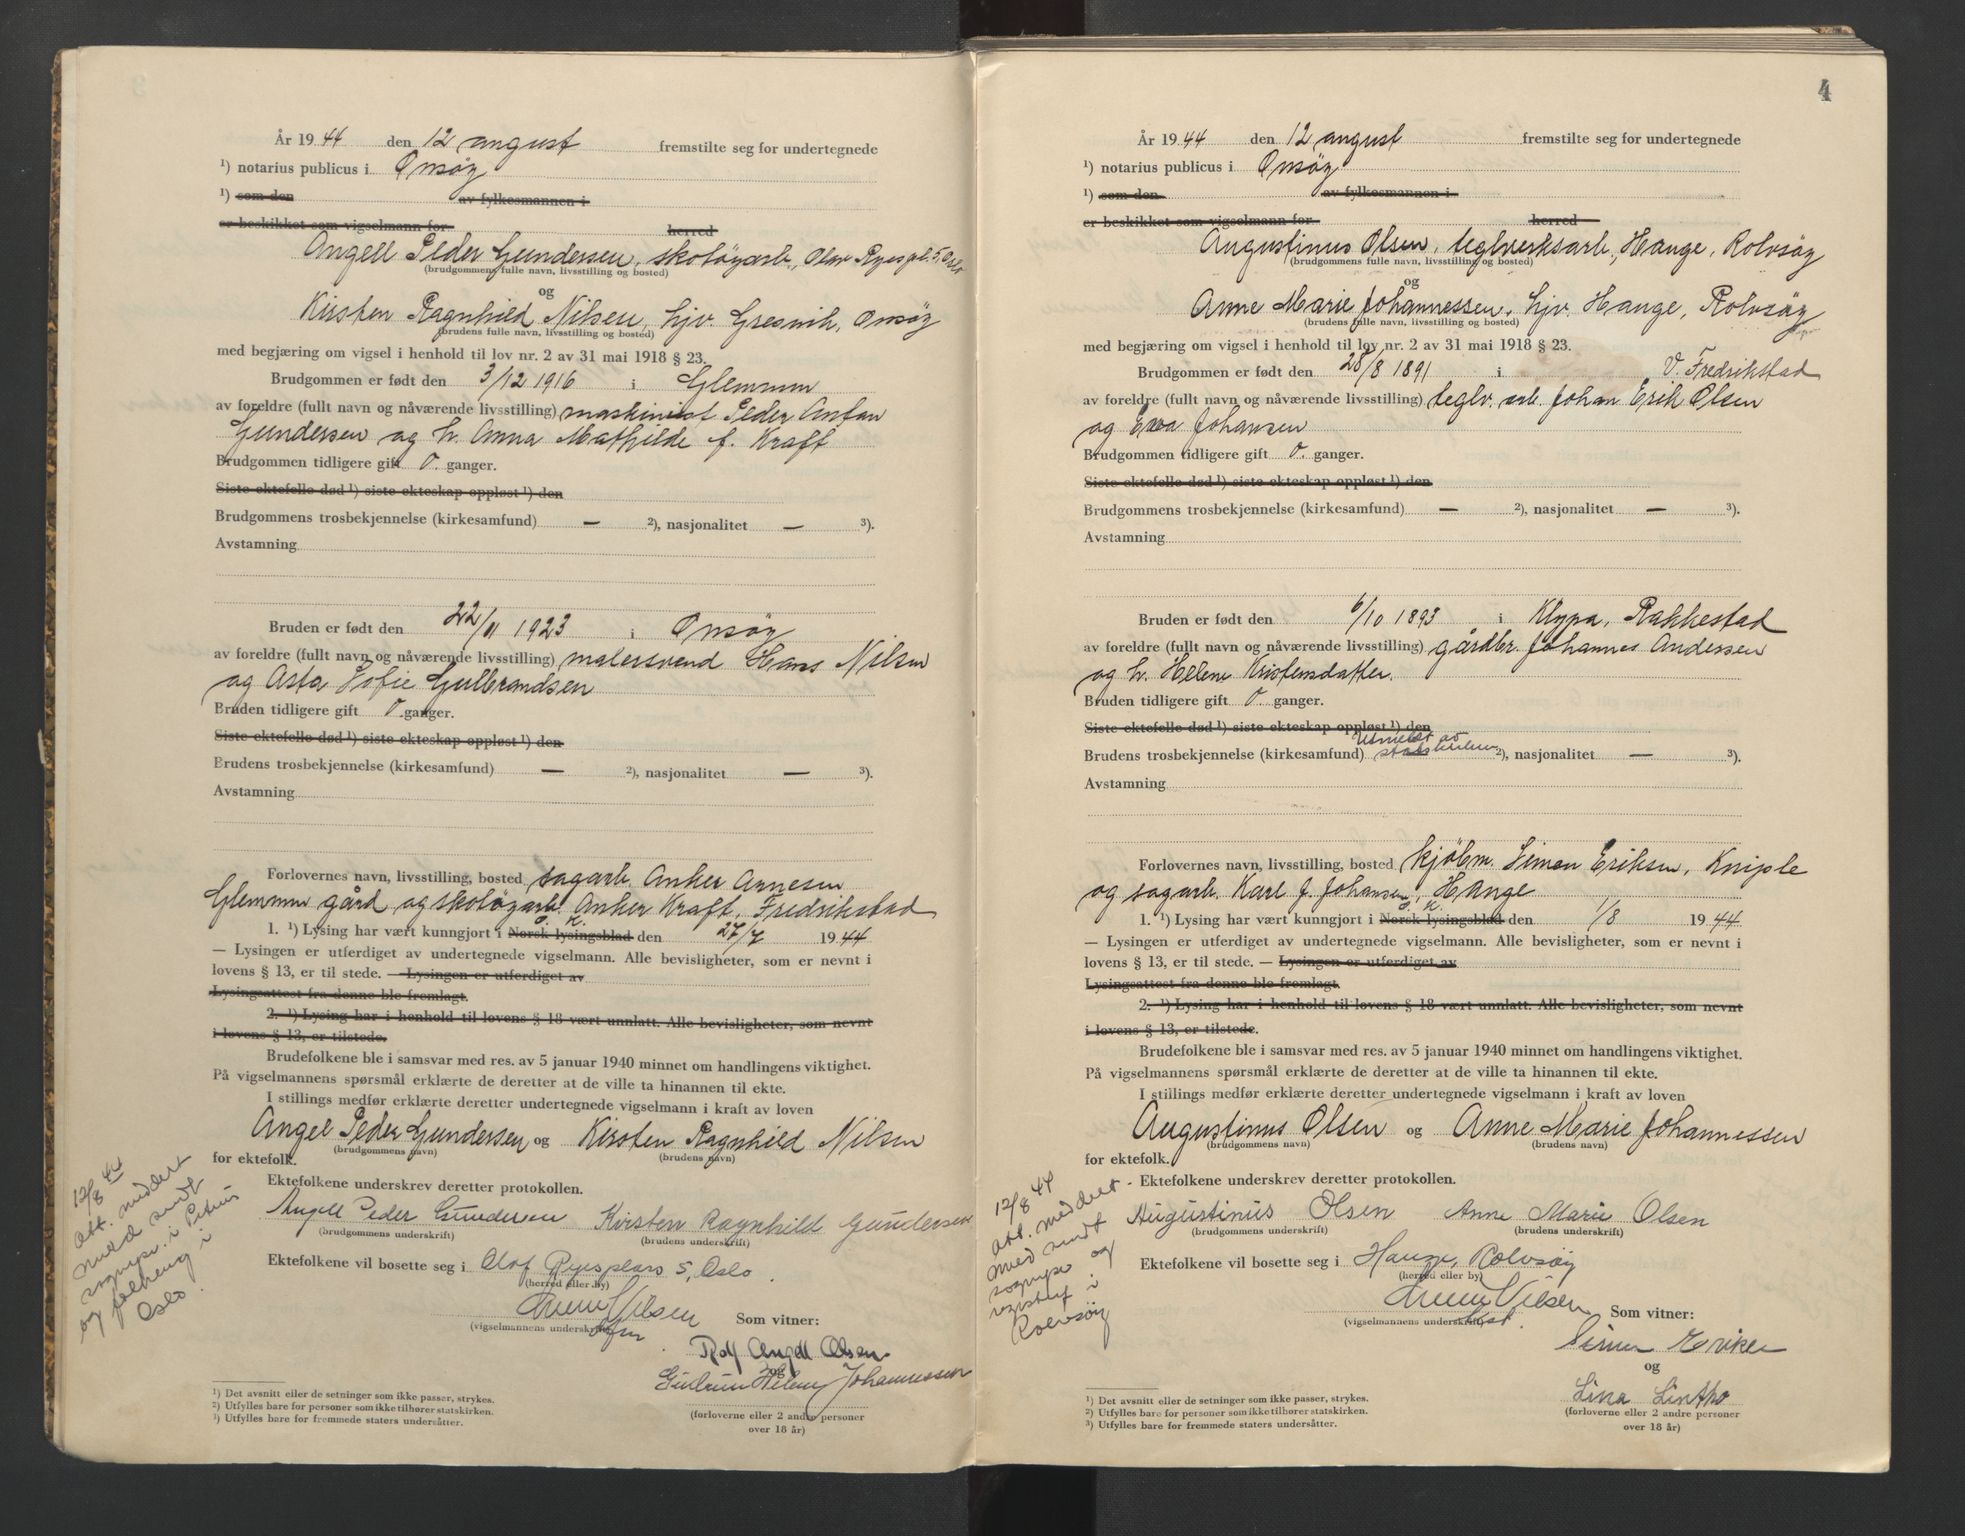 År 1944 den 12 august fremstilte seg for undertegnede
¹) notarius publicus i Onsøy
¹) som den av fylkesmannen i
er beskikket som vigselmann for herred
Angell Peder Gundersen, skotøyarb., Olav Ryespl. 5, Oslo
(brudgommens fulle navn, livsstilling og bosted)
og
Kirsten Ragnhild Nilsen, hjv. Gresvik, Onsøy
(brudens fulle navn, livsstilling og bosted)
med begjæring om vigsel i henhold til lov nr. 2 av 31 mai 1918 § 23.
Brudgommen er født den 3/12 1916 i Glemmen
av foreldre (fullt navn og nåværende livsstilling) maskinist Peder Anton
Gundersen og h. Anna Mathilde f. Kraft
Brudgommen tidligere gift 0. ganger.
Siste ektefelle død ¹) siste ekteskap oppløst ¹) den
Brudgommens trosbekjennelse (kirkesamfund) — ²), nasjonalitet — ³).
Avstamning
Bruden er født den 22/11 1923 i Onsøy
av foreldre (fullt navn og nåværende livsstilling) malersvend Hans Nilsen
og Asta Sofie Gulbrandsen
Bruden tidligere gift 0. ganger.
Siste ektefelle død ¹) siste ekteskap oppløst ¹) den
Brudens trosbekjennelse (kirkesamfund) — ²), nasjonalitet — ³).
Avstamning
Forlovernes navn, livsstilling, bosted sagarb. Anker Arnesen
Glemmen gård og skotøyarb. Anker Kraft, Fredrikstad
Ø. K.
1. ¹) Lysing har vært kunngjort i Norsk lysingsblad den 27/7 1944
— Lysingen er utferdiget av undertegnede vigselmann. Alle bevisligheter, som er nevnt i
lovens § 13, er til stede. — Lysingen er utferdiget av
Lysingsattest fra denne ble fremlagt.
2. ¹) Lysing har i henhold til lovens § 18 vært unnlatt. Alle bevisligheter, som nevnt
i lovens § 13, er tilstede.
Brudefolkene ble i samsvar med res. av 5 januar 1940 minnet om handlingens viktighet.
På vigselmannens spørsmål erklærte de deretter at de ville ta hinannen til ekte.
I stillings medfør erklærte deretter undertegnede vigselmann i kraft av loven
Angell Peder Gundersen og Kirsten Ragnhild Nilsen
(brudgommens navn) (brudens navn)
for ektefolk.
Ektefolkene underskrev deretter protokollen.
Angell Peder Gundersen Kirsten Ragnhild Gundersen
(brudgommens underskrift) (brudens underskrift)
Ektefolkene vil bosette seg i Olaf Ryesplass 5, Oslo.
(herred eller by)
Nilsen Som vitner:
(vigselmannens underskrift)
Rolf Angell Olsen
og
Gudrun Helene Johannessen
(forloverne eller 2 andre personer
over 18 år)
12/8 44
att. meddelt
med sendt
sognepr. i Petrus
og folkereg i
Oslo.
¹) Det avsnitt eller de setninger som ikke passer, strykes.
²) Utfylles bare for personer som ikke tilhører statskirken.
³) Utfylles bare for fremmede staters undersåtter.
4
År 1944 den 12 august fremstilte seg for undertegnede
¹) notarius publicus i Onsøy
¹) som den av fylkesmannen i
er beskikket som vigselmann for herred
Augustinus Olsen, teglverksarb., Hauge, Rolvsøy
(brudgommens fulle navn, livsstilling og bosted)
og
Anne Marie Johannessen, hjv. Hauge, Rolvsøy
(brudens fulle navn, livsstilling og bosted)
med begjæring om vigsel i henhold til lov nr. 2 av 31 mai 1918 § 23.
Brudgommen er født den 28/8 1891 i V. Fredrikstad
av foreldre (fullt navn og nåværende livsstilling) teglv. arb. Johan Erik Olsen
og Eva Johansen
Brudgommen tidligere gift 0. ganger.
Siste ektefelle død ¹) siste ekteskap oppløst ¹) den
Brudgommens trosbekjennelse (kirkesamfund) — ²), nasjonalitet — ³).
Avstamning
Bruden er født den 6/10 1893 i Klypa, Rakkestad
av foreldre (fullt navn og nåværende livsstilling) gårdbr. Johannes Andersen
og h. Helene Kristensdatter.
Bruden tidligere gift 0. ganger.
Siste ektefelle død ¹) siste ekteskap oppløst ¹) den
Utmeldt av
Brudens trosbekjennelse (kirkesamfund) statskirken ²), nasjonalitet — ³).
Avstamning
Forlovernes navn, livsstilling, bosted kjøbm. Simen Eriksen, Kniple
og sagarb. Karl J. Johansen, Hauge
Ø. K.
1. ¹) Lysing har vært kunngjort i Norsk lysingsblad den 1/8 1944
— Lysingen er utferdiget av undertegnede vigselmann. Alle bevisligheter, som er nevnt i
lovens § 13, er til stede. — Lysingen er utferdiget av
Lysingsattest fra denne ble fremlagt.
2. ¹) Lysing har i henhold til lovens § 18 vært unnlatt. Alle bevisligheter, som nevnt
i lovens § 13, er tilstede.
Brudefolkene ble i samsvar med res. av 5 januar 1940 minnet om handlingens viktighet.
På vigselmannens spørsmål erklærte de deretter at de ville ta hinannen til ekte.
I stillings medfør erklærte deretter undertegnede vigselmann i kraft av loven
Augustinus Olsen og Anne Marie Johannessen
(brudgommens navn) (brudens navn)
for ektefolk.
Ektefolkene underskrev deretter protokollen.
Augustinus Olsen Anne Marie Olsen
(brudgommens underskrift) (brudens underskrift)
Ektefolkene vil bosette seg i Hauge, Rolvsøy
(herred eller by)
Nilsen Som vitner:
(vigselmannens underskrift)
Simen Eriksen
og
Lina Lintho
(forloverne eller 2 andre personer
over 18 år)
12/8 44
att. meddelt
med sendt
sognepr og
registerf i
Rolvsøy
¹) Det avsnitt eller de setninger som ikke passer, strykes.
²) Utfylles bare for personer som ikke tilhører statskirken.
³) Utfylles bare for fremmede staters undersåtter.